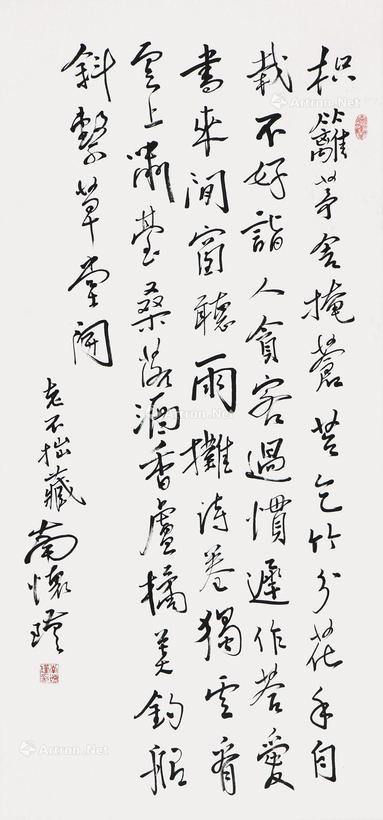 枳籬茅舍掩蒼苔乞竹分花手自
栽不好詣人貪客過慣遲作答愛
書來閒窗聽雨攤詩卷獨看
雲上嘯臺桑落酒香盧橘美釣船
斜繫草堂開
老不拙藏 南懷瑾
Artron.Net
Artron.Net
Artron.Net
Artron.Net